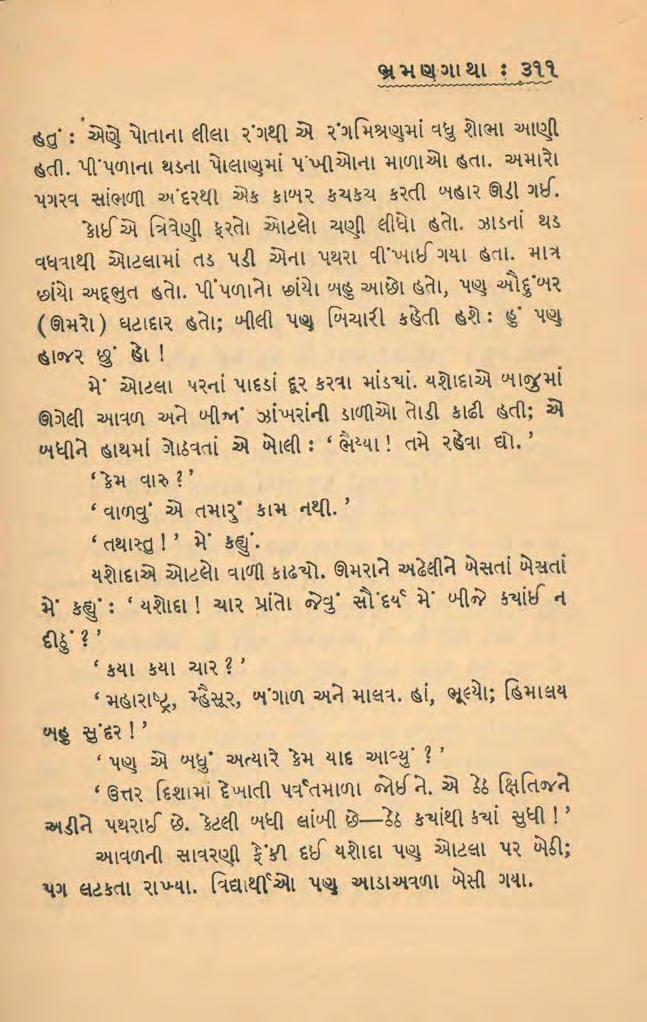 ભ્રમણગાથા : ૩૧૧
હતું : એણે પોતાના લીલા રંગથી એ રંગમિશ્રણમાં વધુ શોભા આણી
હતી. પીંપળાના થડના પોલાણમાં પંખીઓના માળાઓ હતા. અમારો
પગરવ સાંભળી અંદરથી એક કાબર કચકચ કરતી બહાર ઊડી ગઈ.
કોઈએ ત્રિવેણી ફરતો ઓટલો ચણી લીધો હતો. ઝાડનાં થડ
વધવાથી ઓટલામાં તડ પડી એના પથરા વીંખાઈ ગયા હતા. માત્ર
છાંયો અદ્દભુત હતો. પીંપળાનો છાંયો બહુ આછો હતો, પણ ઔદુંબર
(ઊમરો) ઘટાદાર હતો; બીલી પણ બિચારી કહેતી હશે : હું પણ
હાજર છું હો !
મેં ઓટલા પરનાં પાદડાં દૂર કરવા માંડ્યાં. યશોદાએ બાજુમાં
ઊગેલી આવળ અને બીજાં ઝાંખરાંની ડાળીઓ તોડી કાઢી હતી; એ
બધીને હાથમાં ગોઠવતાં એ બોલી : ‘ ભૈય્યા ! તમે રહેવા દ્યો. ’
‘ કેમ વારુ ? ’
‘ વાળવું એ તમારું કામ નથી. ’
‘ તથાસ્તુ ! ’ મેં કહ્યું.
યશોદાએ ઓટલો વાળી કાઢ્યો. ઊમરાને અઢેલીને બેસતાં બેસતાં
મેં કહ્યું : ‘ યશોદા ! ચાર પ્રાંતો જેવું સૌંદર્ય મેં બીજે ક્યાંઈ ન
દીઠું ? ’
‘ કયા કયા ચાર ? ’
‘ મહારાષ્ટ્ર, મ્હૈસૂર, બંગાળ અને માલવ. હાં, ભૂલ્યો; હિમાલય
બહુ સુંદર ! ’
‘ પણ એ બધું અત્યારે કેમ યાદ આવ્યું ? ’
‘ ઉત્તર દિશામાં દેખાતી પર્વતમાળા જોઈને. એ ઠેઠ ક્ષિતિજને
અડીને પથરાઈ છે. કેટલી બધી લાંબી છે—ઠેઠ ક્યાંથી ક્યાં સુધી ! ’
આવળની સાવરણી ફેંકી દઈ યશોદા પણ ઓટલા પર બેઠી;
પગ લટકતા રાખ્યા. વિદ્યાર્થીઓ પણ આડાઅવળા બેસી ગયા.